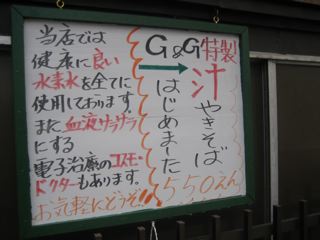 当店では
健康に良い
水素水を全てに
使用しております。
また血液サラサラ
にする
電子治療のコスモ
ドクターもあります。
お気軽にどうぞ!!
G&G特製
汁やきそば
はじめました
550えん